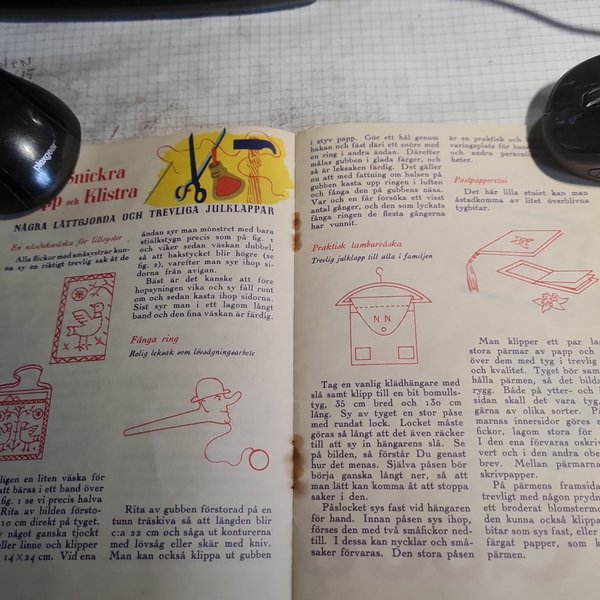 nickra
pp och Klistra
NÅGRA LÄTTGJORDA OCH TREVLIGA JULKLAPPAR
En näsduksväska för lillsyster
Alla flickor med småsystrar kun-
na sy en riktigt trevlig sak åt de
ändan syr man mönstret med bara
stjälkstygn precis som på fig. 1
och viker sedan väskan dubbel,
så att bakstycket blir högre (se
fig. 2), varefter man syr ihop si-
dorna från avigan.
Bäst är det kanske att före
hopsyningen vika och sy fåll runt
om och sedan kasta ihop sidorna.
Sist syr man i ett lagom långt
band och den fina väskan är färdig.
Fånga ring
Rolig leksak som lövsågningsarbete
ligen en liten väska för
att bäras i ett band över
fig. 1 se vi precis halva
Rita av bilden försto-
10 cm direkt på tyget,
v något ganska tjockt
eller linne och klipper
14×24 cm. Vid ena
Rita av gubben förstorad på en
tunn träskiva så att längden blir
c:a 22 cm och såga ut konturerna
med lövsåg eller skär med kniv.
Man kan också klippa ut gubben
i styv papp. Gör ett hål genom
hakan och fäst däri ett snöre med
en ring i andra ändan. Därefter
målas gubben i glada färger, och
så är leksaken färdig. Det gäller
nu att med fattning om halsen på
gubben kasta upp ringen i luften
och fånga den på gubbens näsa.
Var och en får försöka ett visst
antal gånger, och den som lyckats
fånga ringen de flesta gångerna
har vunnit.
Praktisk tamburväska
Trevlig julklapp till alla i familjen
N.N.
Tag en vanlig klädhängare med
slå samt klipp till en bit bomulls-
tyg, 35 cm bred och 130 cm
lång. Sy av tyget en stor påse
med rundat lock. Locket måste
göras så långt att det även räcker
till att sy in hängarens slå. Se
på bilden, så förstår Du genast
hur det menas. Själva påsen bör
börja ganska långt ner, så att
man lätt kan komma åt att stoppa
saker i den.
Påslocket sys fast vid hängaren
för hand. Innan påsen sys ihop,
förses den med två småfickor ned-
till. I dessa kan nycklar och små-
saker förvaras. Den stora påsen
är en praktisk och
varingsplats för hand
och andra personli
heter.
Postpapperetui
Det här lilla etuiet kan man
åstadkomma av litet överblivna
tygbitar.
Man klipper ett par la
stora pärmar av papp och
över dem med tyg i trevlig
och kvalitet. Tyget bör sam
hålla pärmen, så det bilda
rygg. Både på ytter- och i
sidan skall det vara tyg,
gärna av olika sorter. På
marnas innersidor göres e
fickor, lagom stora för
I den ena förvaras oskriv
vert och i den andra obe
brev. Mellan pärmarna
skrivpapper.
På pärmens framsida
trevligt med någon prydn
ett broderat blomstermo
den kunna också klippa
bitar som sys fast, eller
färgat papper, som k
pärmen.
plexgear